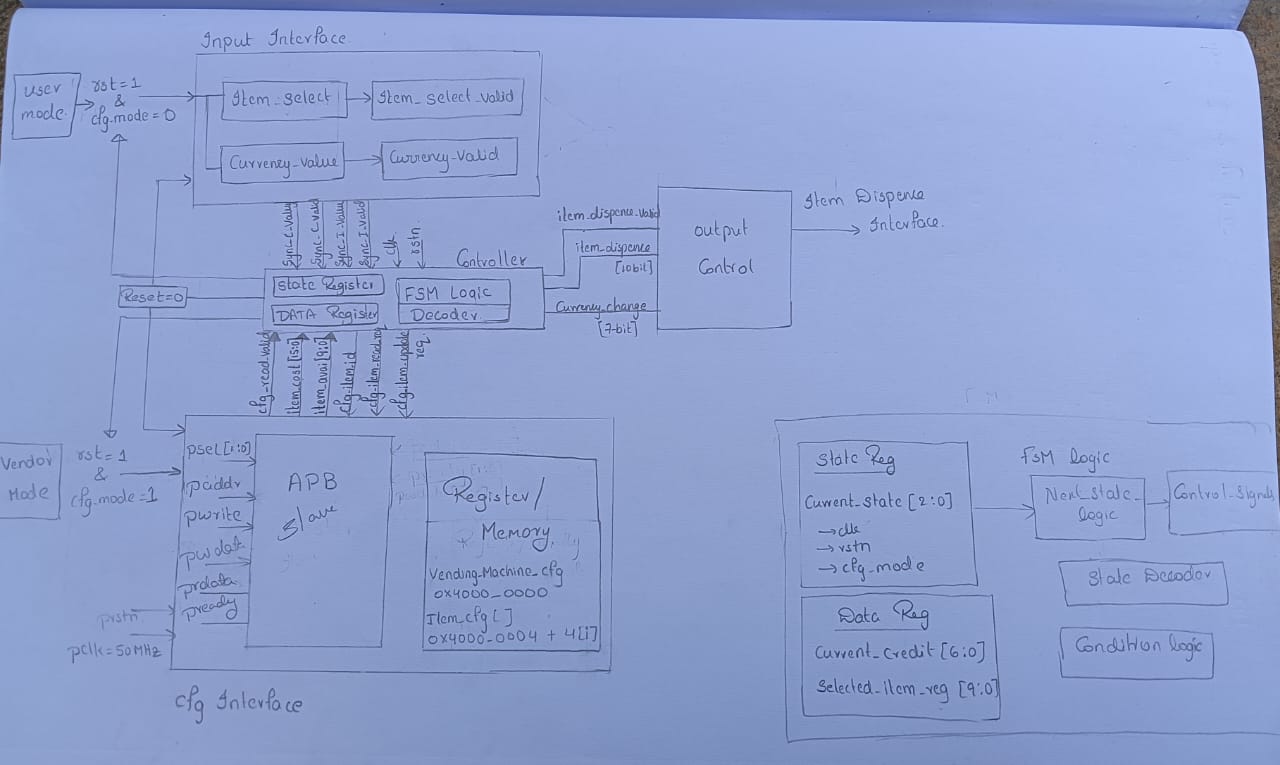 Input Interface
user
mode
rst=1
&
cfg.mode=0
Item_select
Item_select_valid
Currency_Value
Currency_Valid
Sync_C_Value
Sync_C_Valid
Sync_I_Value
Sync_I_Valid
clk
rstn
Controller
State Register
DATA Register
FSM Logic
Decoder
Reset=0
item_dispence_valid
item_dispence
[10bit]
Currency_change
[7-bit]
Output
Control
Item Dispence
Interface.
cfg_read_valid
item_cost[15:0]
item_avai[9:0]
cfg_item_id
cfg_item_read_req
cfg_item_update
req.
Vendor
Mode
rst=1
&
cfg_mode=1
psel[1:0]
paddr
pwrite
pwdat
prdata
pready
prstn
pclk=50MHz
APB
Slave
Register/
Memory
Vending_Machine_cfg
0x4000_0000
Item_cfg[ ]
0x4000_0004 + 4[i]
cfg Interface
State Reg
Current_state [2:0]
→clk
→rstn
→cfg_mode
Data Reg
Current_Credit [6:0]
Selected_item_reg [9:0]
FSM logic
Next_state_
logic
Control_Signals
State Decoder
Condition logic